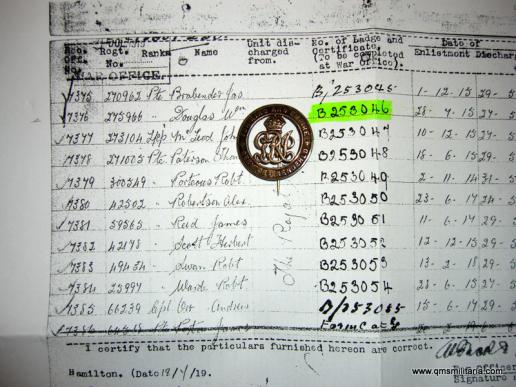 Reco. Off. No. Regtl. No. Rank. Name Unit discharged from. No. of Badge and Certificate (To be completed at War Office). Date of Enlistment Discharge
WAR OFFICE.
7375 270962 Pte Brabender Jas B/253045 1-12-15 29-5
7376 275966 " Douglas Wm B253046 28-4-15 27-5
7377 273104 John B253047 10-12-15 27-5
7378 271003 Pte Paterson B253048 18-6-15 29-5
7379 300349 " Porteous Robt B253049 2-11-14 31-5
7380 42502 " Robertson Alex B253050 23-6-17 24-5
7381 59565 " Reid James B253051 11-6-17 29-5
7382 42178 " Scott Herbert B253052 12-12-15 29-5
7383 49454 " Swan Robt B253053 13-2-18 29-5
7384 25997 " Wards Robt B253054 28-6-17 29-5
7385 66239 Cpl Orr Andrew B/253055 15-6-17 29-5
The Roya
I certify that the particulars furnished hereon are correct.
Hamilton. (Date 19/7/19.
Officer
Signature
www.qmsmilitaria.com